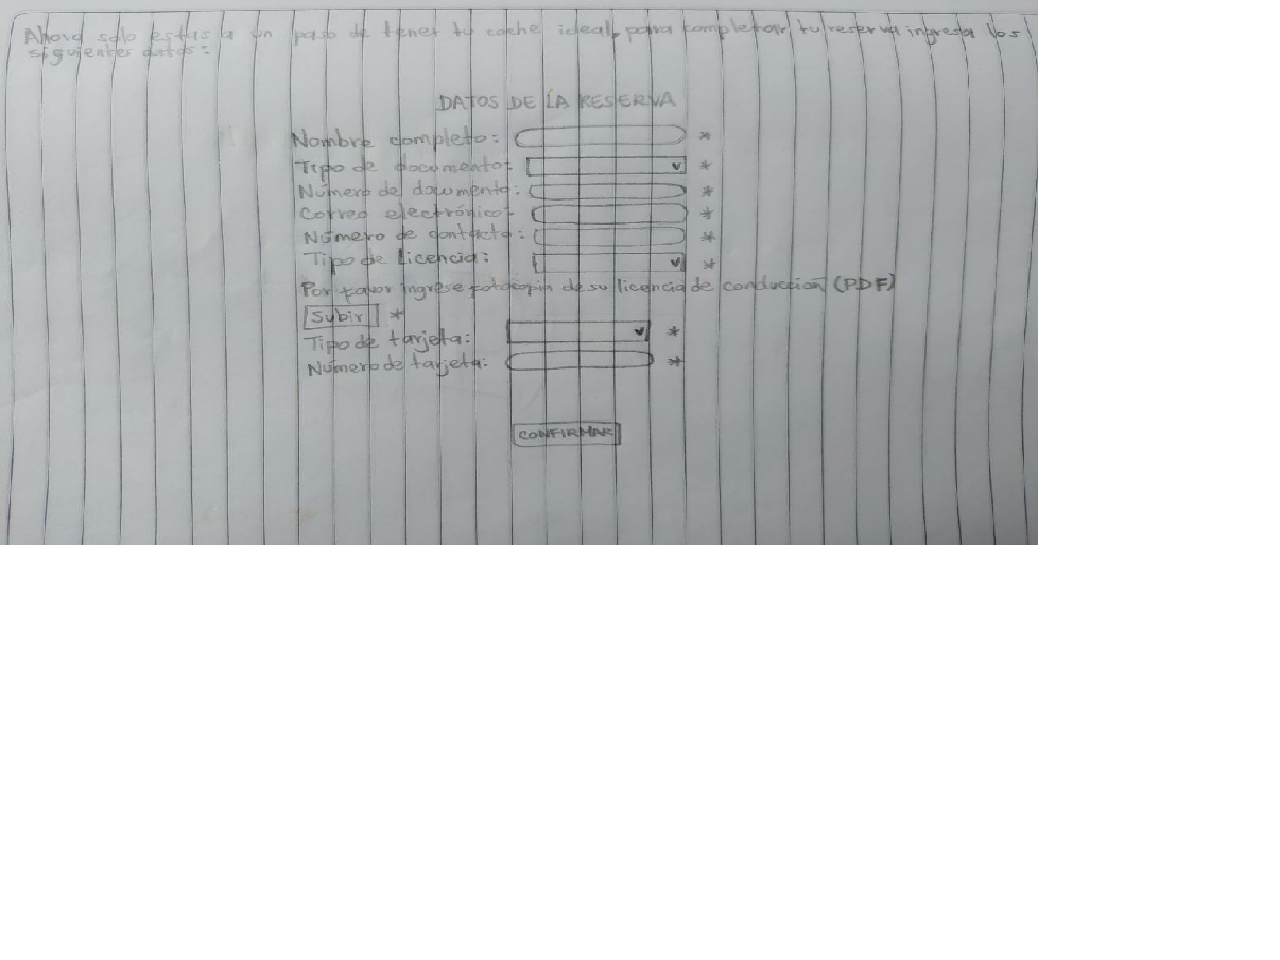 Ahora solo estas a un paso de tener tu coche ideal, para completar tu reserva ingresa los
siguientes datos:
DATOS DE LA RESERVA
Nombre completo: *
Tipo de documento: *
Número de documento: *
Correo electrónico: *
Número de contacto: *
Tipo de Licencia: *
Por favor ingrese fotocopia de su licencia de conducción (PDF)
Subir *
Tipo de tarjeta: *
Número de tarjeta: *
CONFIRMAR